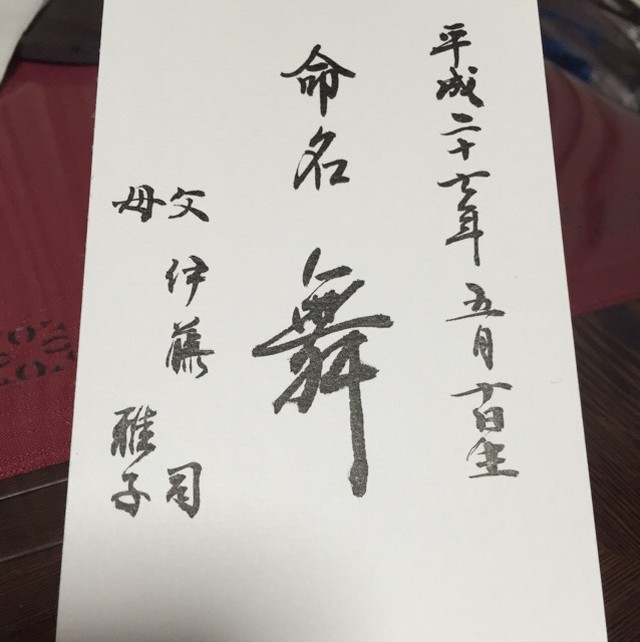 平成二十七年 五月十日生
命名 舞
父 伊藤 司
母 雅子